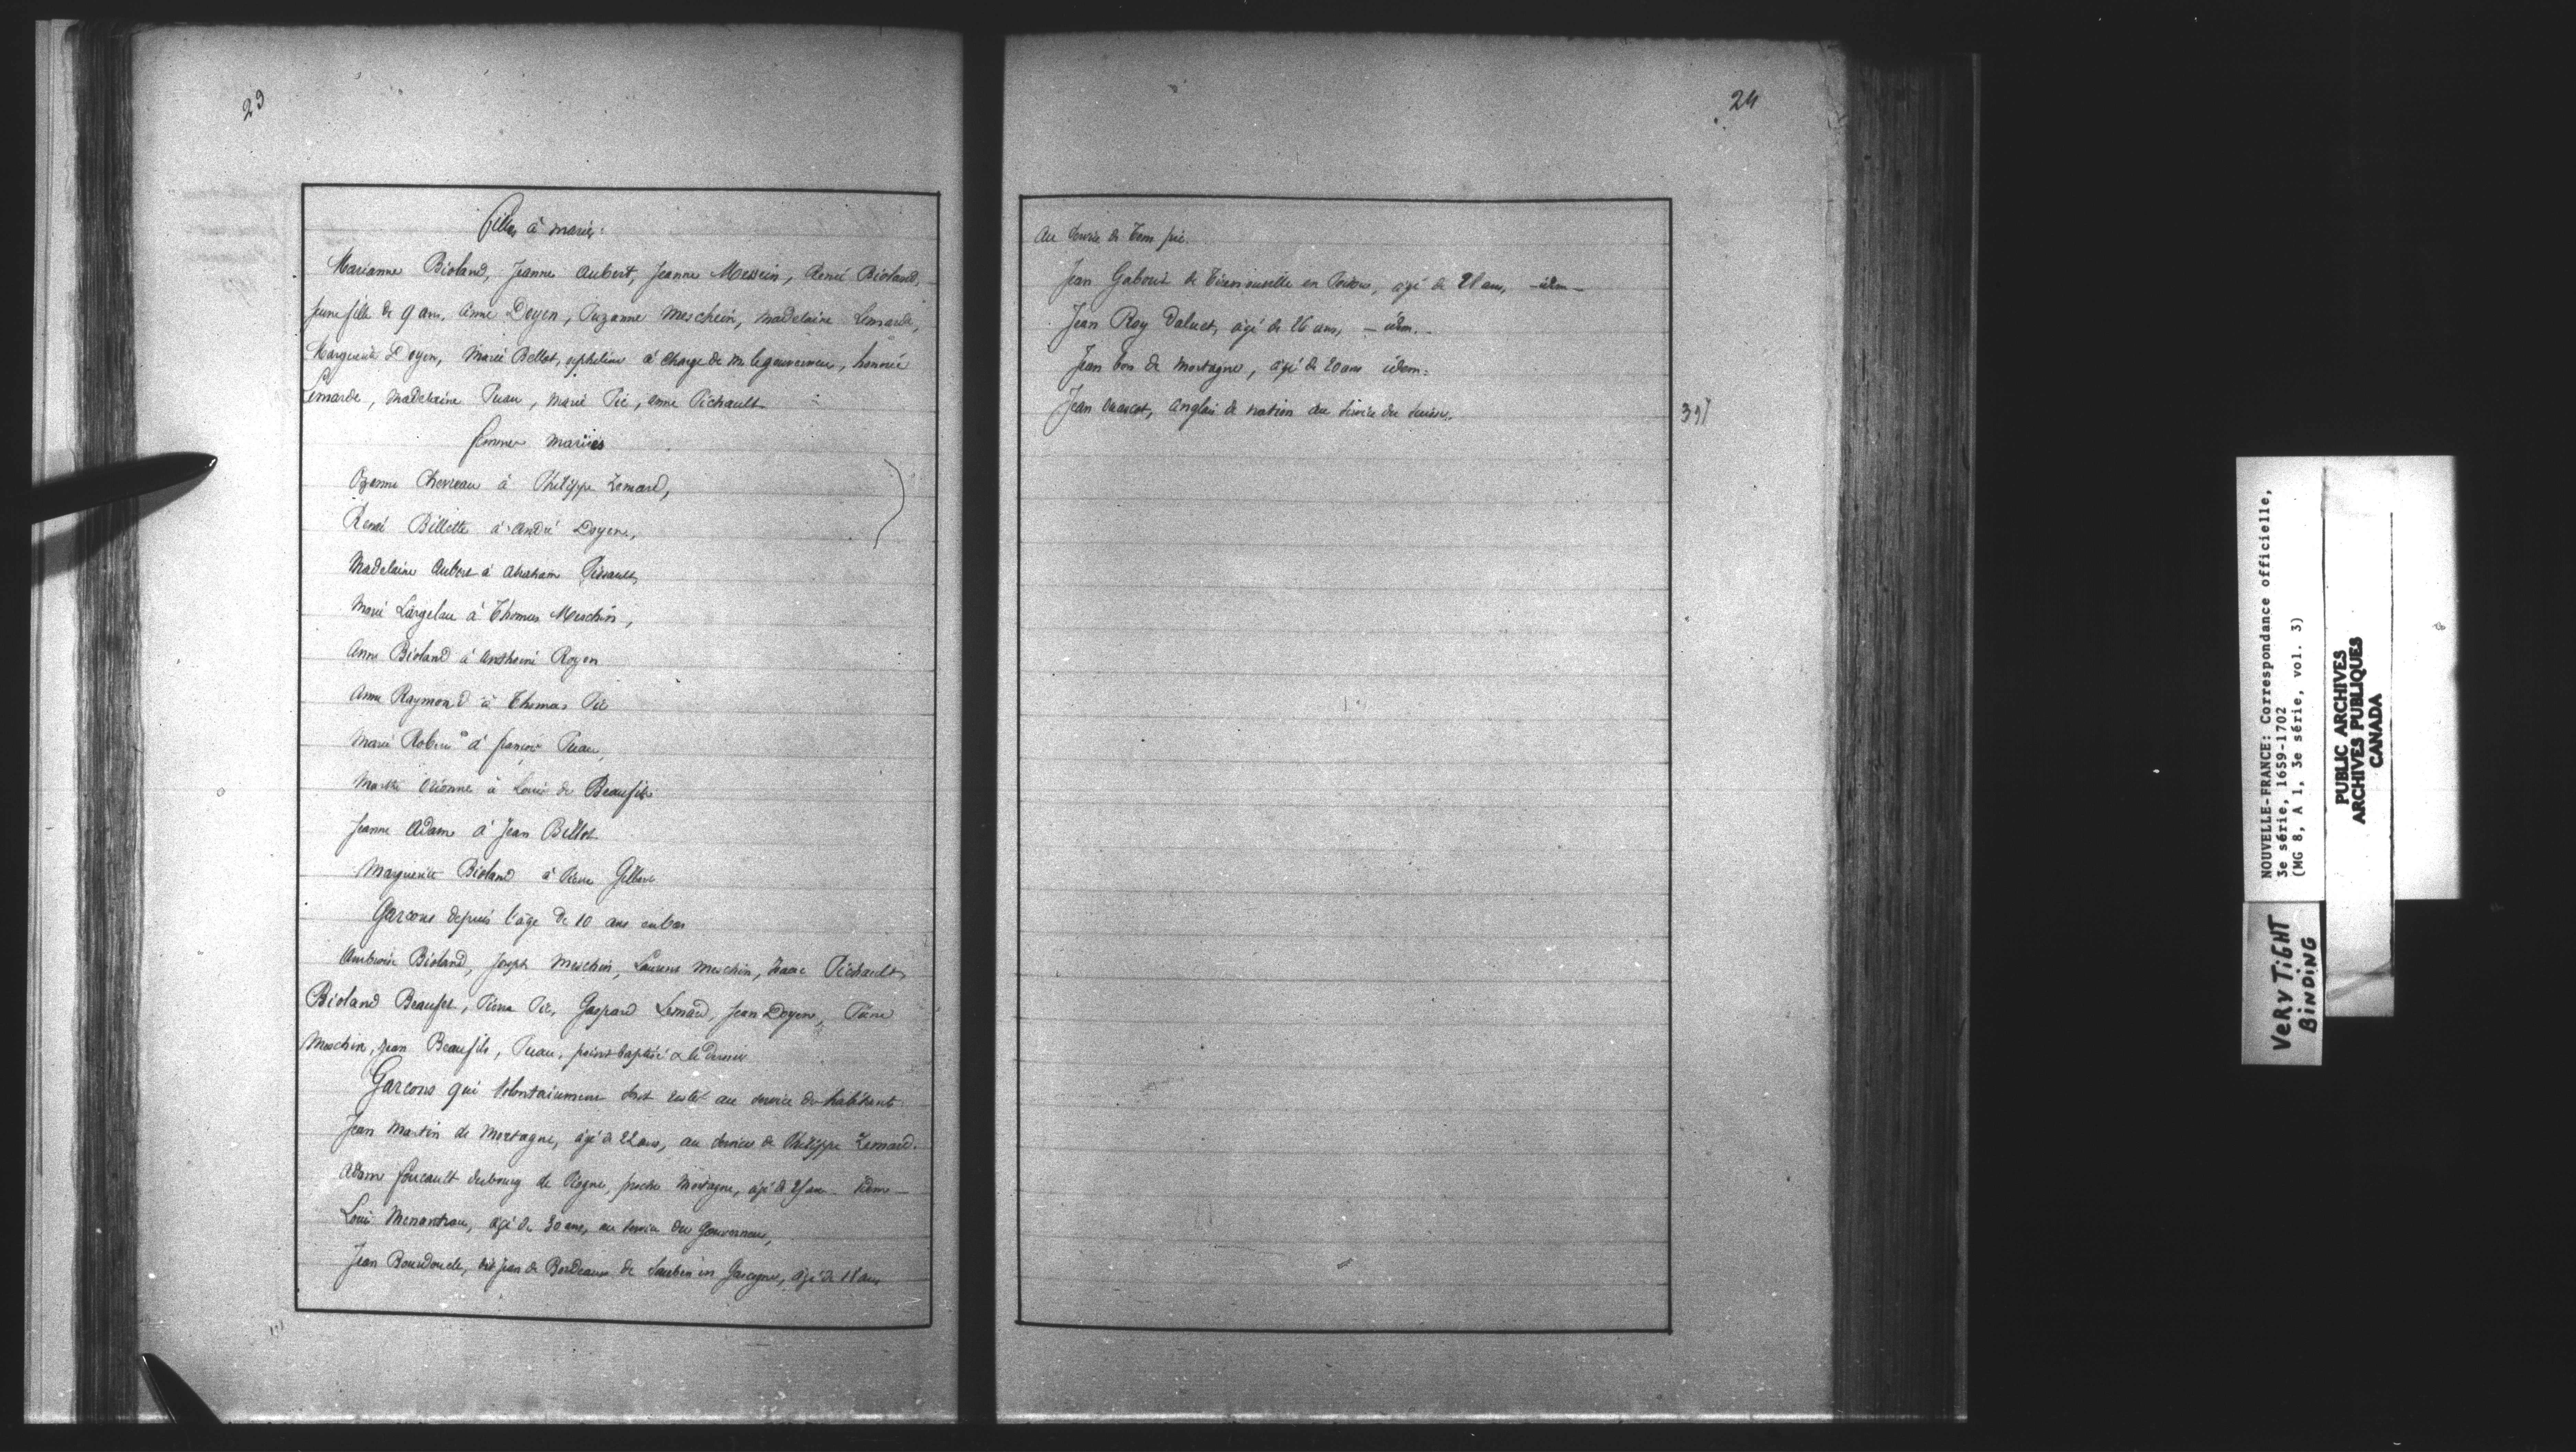 23
Filles à marier:
Marianne Bioland, Jeanne Aubert, Jeanne Messein, René Bioland,
jeune fille de 9 ans, Anne Doyen, Suzanne Meschein, Madelaine Lemarde,
Margerite Doyen, Marie Bellot, orpheline à charge de M. le gouverneur, honnée
Lemarde, Madelaine Puau, Marie Pié, Anne Pichault
femmes mariées
Ozanne Chevreau à Philippe Lemard,
René Billette à André Doyen,
Madelaine Aubert à Abraham
Marie Largelau à Thomas Meschin,
Anne Bioland à Anthoine Royen
Anne Raymond à Thomas Pié
Marie Robin à françois Puau,
Marthe à Louis de Beaufils
Jeanne Adam à Jean Bellot
Marguerite Bioland à Pierre Gilbert
Garcons depuis l'age de 10 ans en bas
Ambroise Bioland, Joseph Meschin, Laurens Meschin, Isaac Pichault,
Bioland Beaufils, Pierre Pié, Gaspard Lemard, Jean Doyen, Pierre
Meschin, Jean Beaufils, Puau, point baptisé le dernier
Garcons qui volontairement sont resté au service des habitants
Jean Martin de Mortagne, âgé de 22 ans, au service de Philippe Lemard.
Adam foucault dubourg de proche Mortagne, âgé de ans. Idem
Louis Menantrau, âgé de 30 ans, au service du Gouverneur,
Jean dit Jean de Bordeaux de en Gascogne, âgé de 18 ans
24
Au service de Tom pié.
Jean Gabouit de en Poitou, âgé de 28 ans, - idem -
Jean Roy Daluet, âgé de 26 ans, - idem. -
Jean bon de Mortagne, âgé de 20 ans idem:
Jean anglais de nation au service du
397
NOUVELLE-FRANCE: Correspondance officielle,
3e série, 1659-1702
(MG 8, A 1, 3e série, vol. 3)
PUBLIC ARCHIVES
ARCHIVES PUBLIQUES
CANADA
VERY TIGHT
BINDING